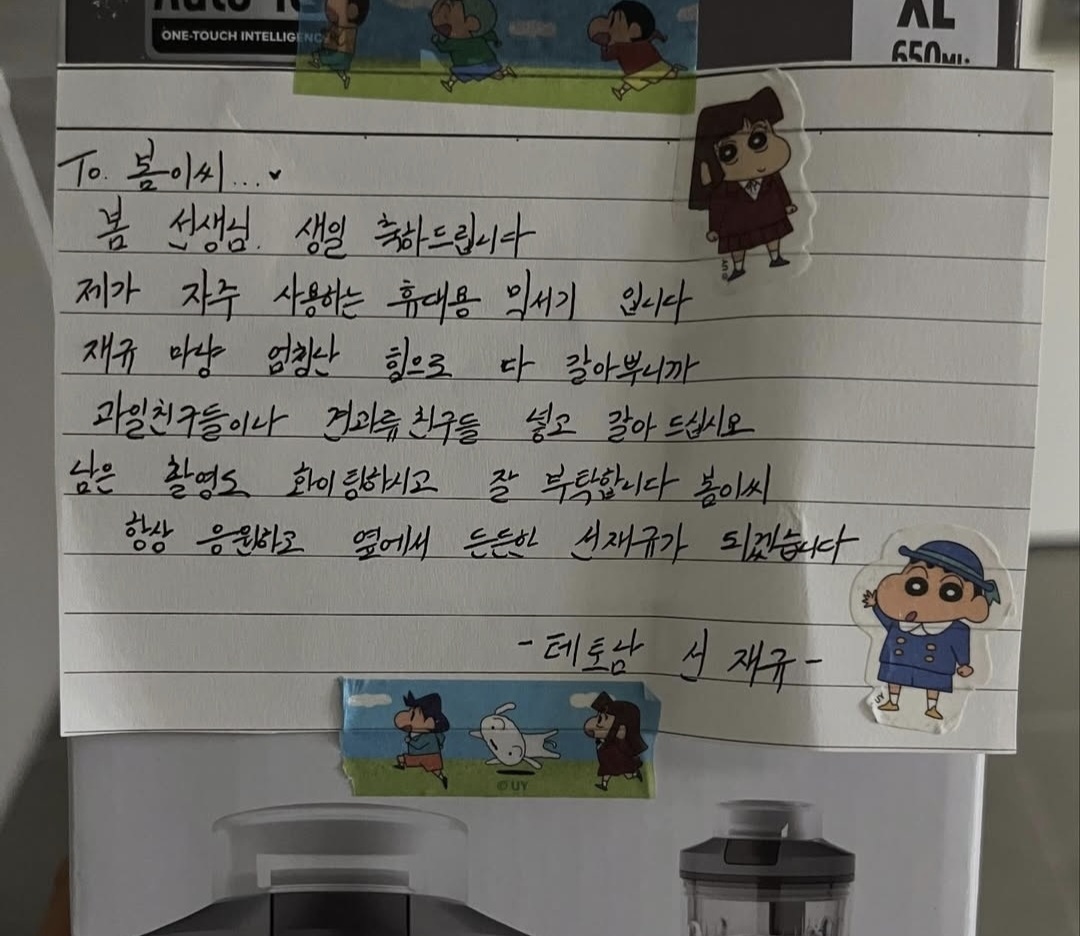 ONE-TOUCH INTELLIGENCE
XL
650ML
To. 봄이씨...♥
봄 선생님. 생일 축하드립니다
제가 자주 사용하는 휴대용 믹서기 입니다
재규 마냥 엄청난 힘으로 다 갈아뿌니까
과일친구들이나 견과류친구들 넣고 갈아 드십시요
남은 촬영도 화이팅하시고 잘 부탁합니다 봄이씨
항상 응원하고 옆에서 든든한 선재규가 되겠습니다
- 테토남 선 재규 -
UY
© UY